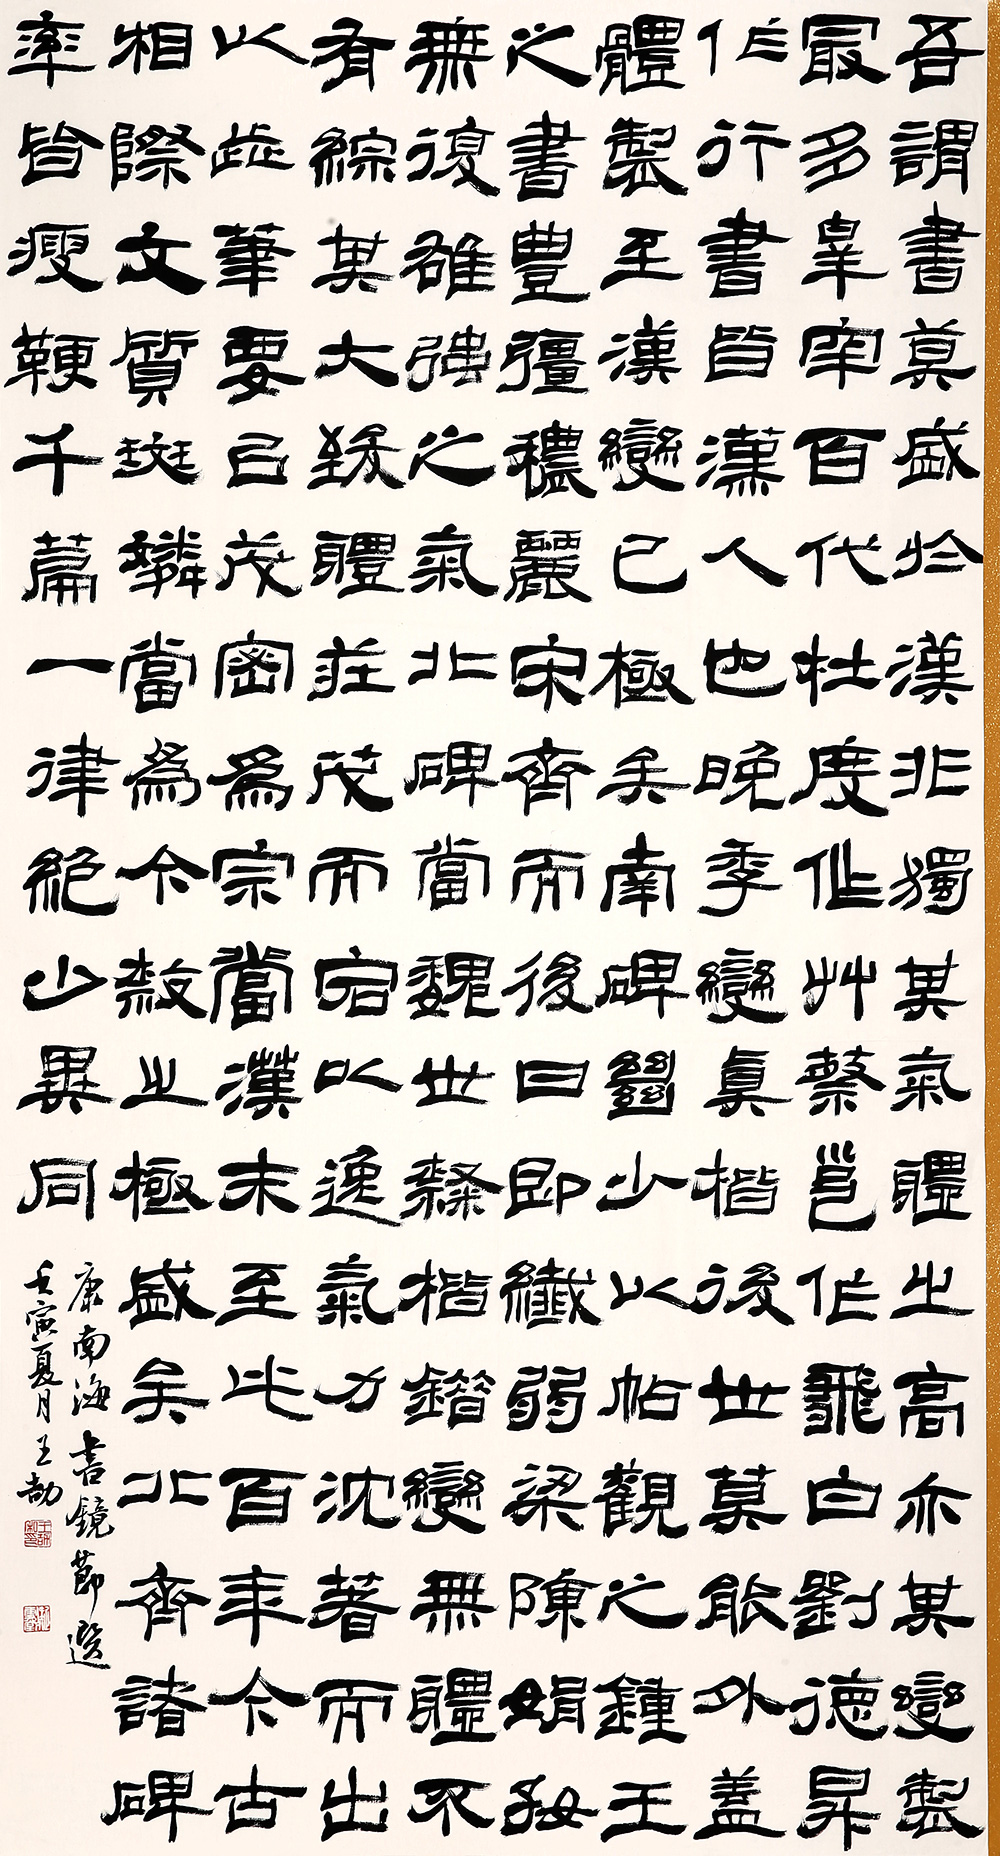 吾謂書莫盛於漢非獨其氣體之高亦其變製
最多皋牢百代杜度作艸蔡邕作飛白劉德昇
作行書皆漢人也晚季變真楷後世莫能外蓋
體製至漢變已極矣南碑絕少以帖觀之鍾王
之書豐彊穠麗宋齊而後日即纖弱梁陳娟好
無復雄強之氣北碑當魏世隸楷錯變無體不
有綜其大致體莊茂而宕以逸氣力沈著而出
以歰筆要㠯茂密為宗當漢末至此百年今古
相際文質斑璘當為今隸之極盛矣北齊諸碑
率皆瘦鞕千篇一律絕少異同
康南海書鏡節選
壬寅夏月王劼